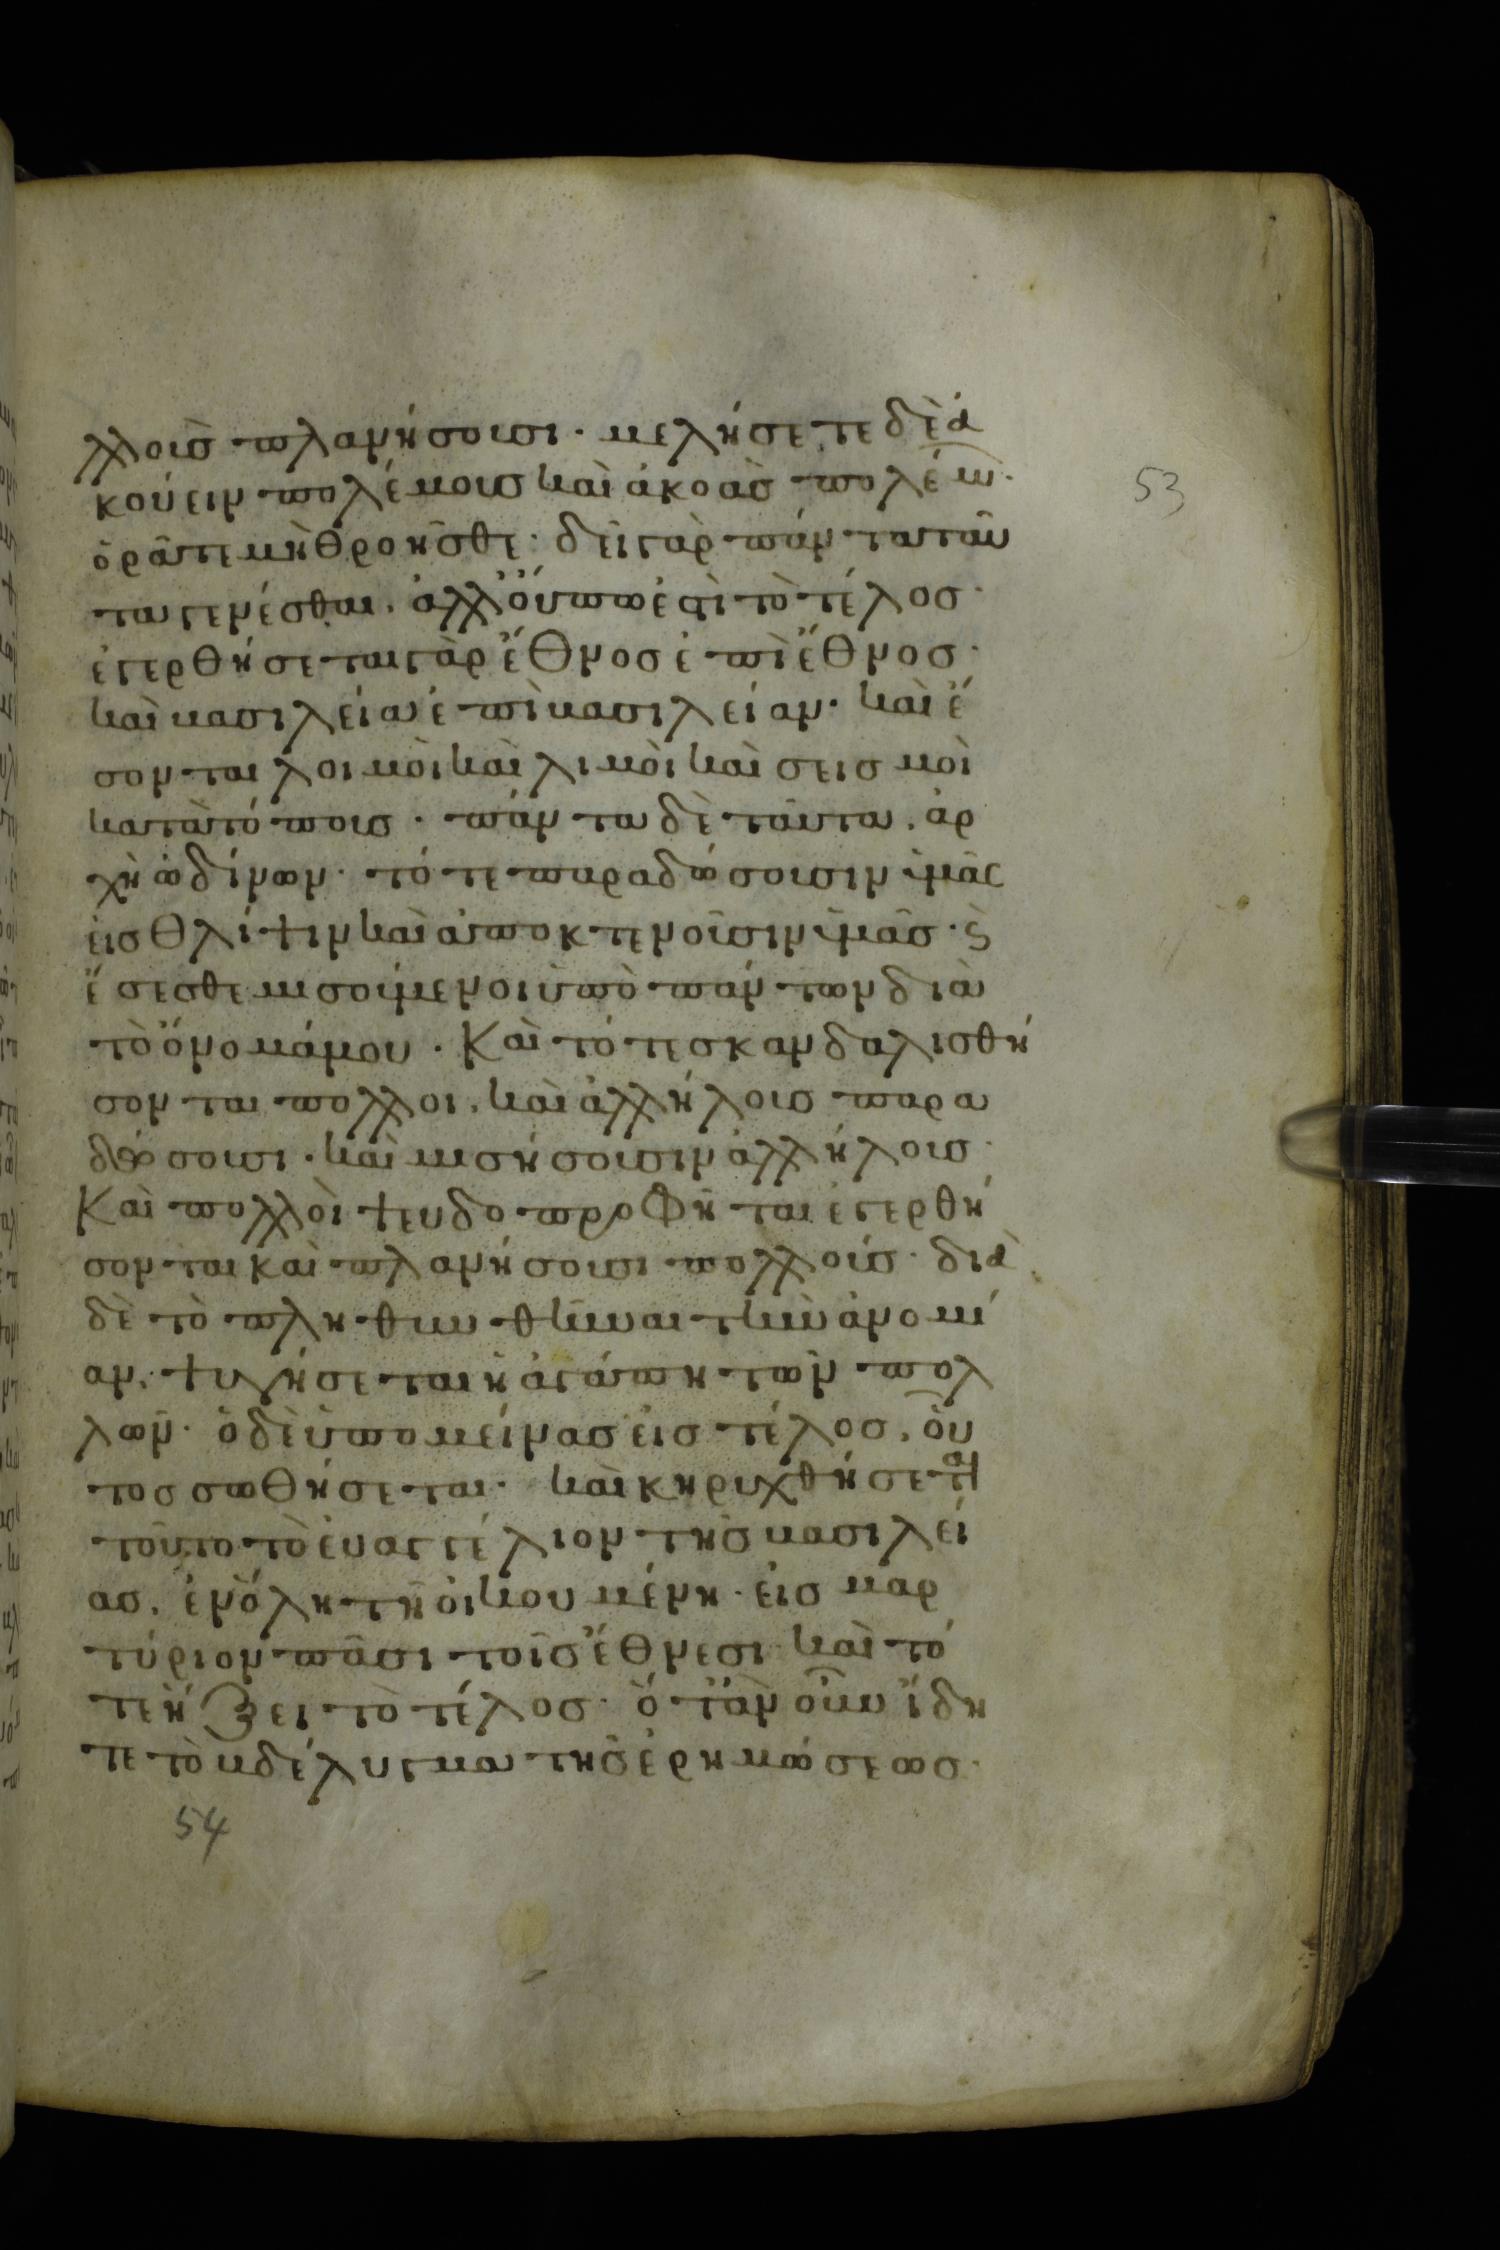 λλοὺς πλανήσουσι· μελήσετε δὲ ἀ
κούειν πολέμους καὶ ἀκοὰς πολέμων·
53
ὁρᾶτε μὴ θροῆσθε· δεῖ γὰρ πάντα ταῦ
τα γενέσθαι. ἀλλ' οὔπω ἐστὶ τὸ τέλος·
ἐγερθήσεται γὰρ ἔθνος ἐπὶ ἔθνος·
καὶ βασιλεία ἐπὶ βασιλείαν· καὶ ἔ
σονται λοιμοὶ καὶ λιμοὶ καὶ σεισμοὶ
κατὰ τόπους· πάντα δὲ ταῦτα, ἀρ
χὴ ὠδίνων· τότε παραδώσουσιν ὑμᾶς
εἰς θλίψιν καὶ ἀποκτενοῦσιν ὑμᾶς· ϛ̀
ἔσεσθε μισούμενοι ὑπὸ πάντων διὰ
τὸ ὄνομά μου· Καὶ τότε σκανδαλισθή
σονται πολλοι, καὶ ἀλλήλους παρα
δώσουσι· καὶ μισήσουσιν ἀλλήλους·
Καὶ πολλοὶ ψευδοπροφῆται ἐγερθή
σονται καὶ πλανήσουσι πολλούς· διὰ
δὲ τὸ πληθυνθῆναι τὴν ἀνομί
αν, ψυγήσεται ἡ ἀγάπη τῶν πολ
λῶν· ὁ δὲ ὑπομείνας εἰς τέλος, οὗ
τος σωθήσεται· καὶ κηρυχθήσεται
τοῦτο τὸ εὐαγγέλιον τῆς βασιλεί
ας, ἐν ὅλῃ τῇ οἰκουμένῃ· εἰς μαρ
τύριον πᾶσι τοῖς ἔθνεσι καὶ τό
τε ἥξει τὸ τέλος· ὅταν οὖν ἴδη
τε τὸ βδέλυγμα τῆς ἐρημώσεως·
54